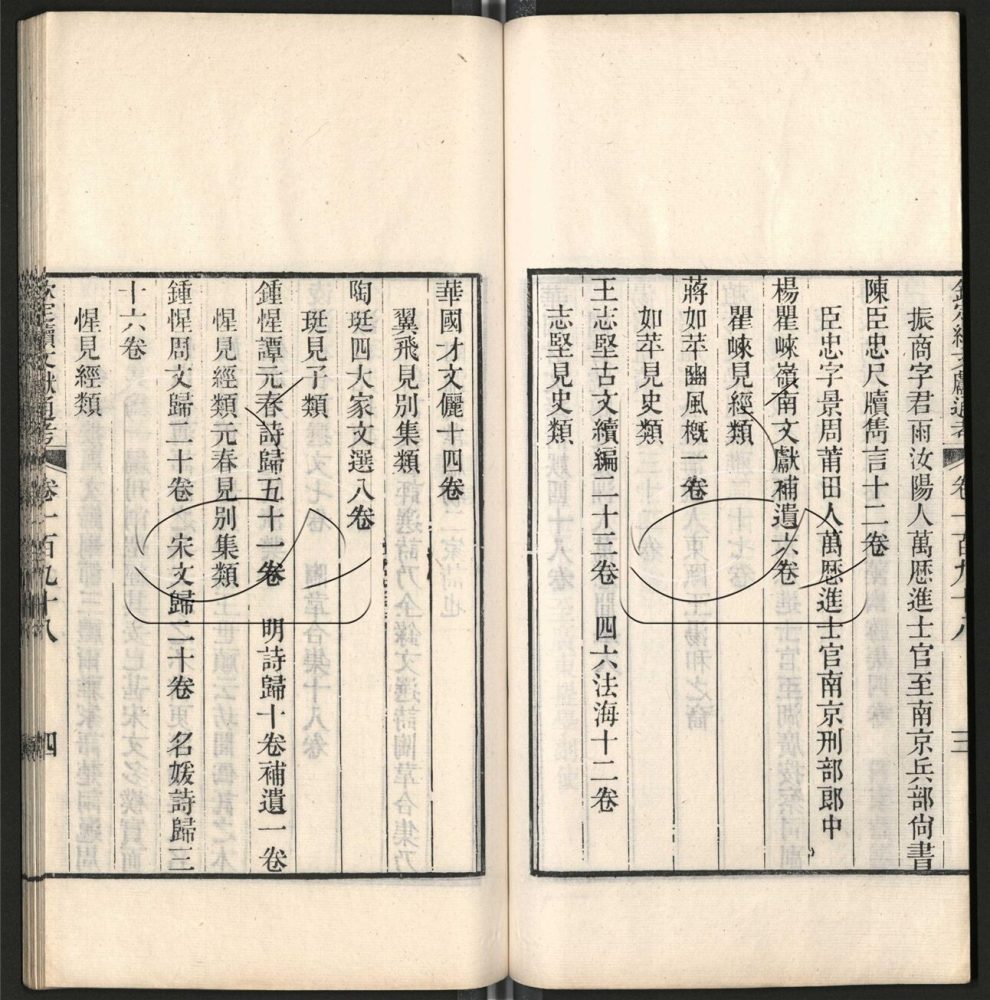 欽定續文獻通考 卷一百九十八 三
振商字君雨汝陽人萬厯進士官至南京兵部尙書
陳臣忠尺牘雋言十二卷
臣忠字景周莆田人萬厯進士官南京刑部郎中
楊瞿崍嶺南文獻補遺六卷
瞿崍見經類
蔣如苹豳風概一卷
如苹見史類
王志堅古文續編二十三卷 四六法海十二卷
志堅見史類
華國才文儷十四卷
翼飛見別集類
陶珽四大家文選八卷
珽見子類
鍾惺譚元春詩歸五十一卷 明詩歸十卷補遺一卷
惺見經類元春見別集類
鍾惺周文歸二十卷 宋文歸二十卷 名媛詩歸三
十六卷
惺見經類
欽定續文獻通考 卷一百九十八 四